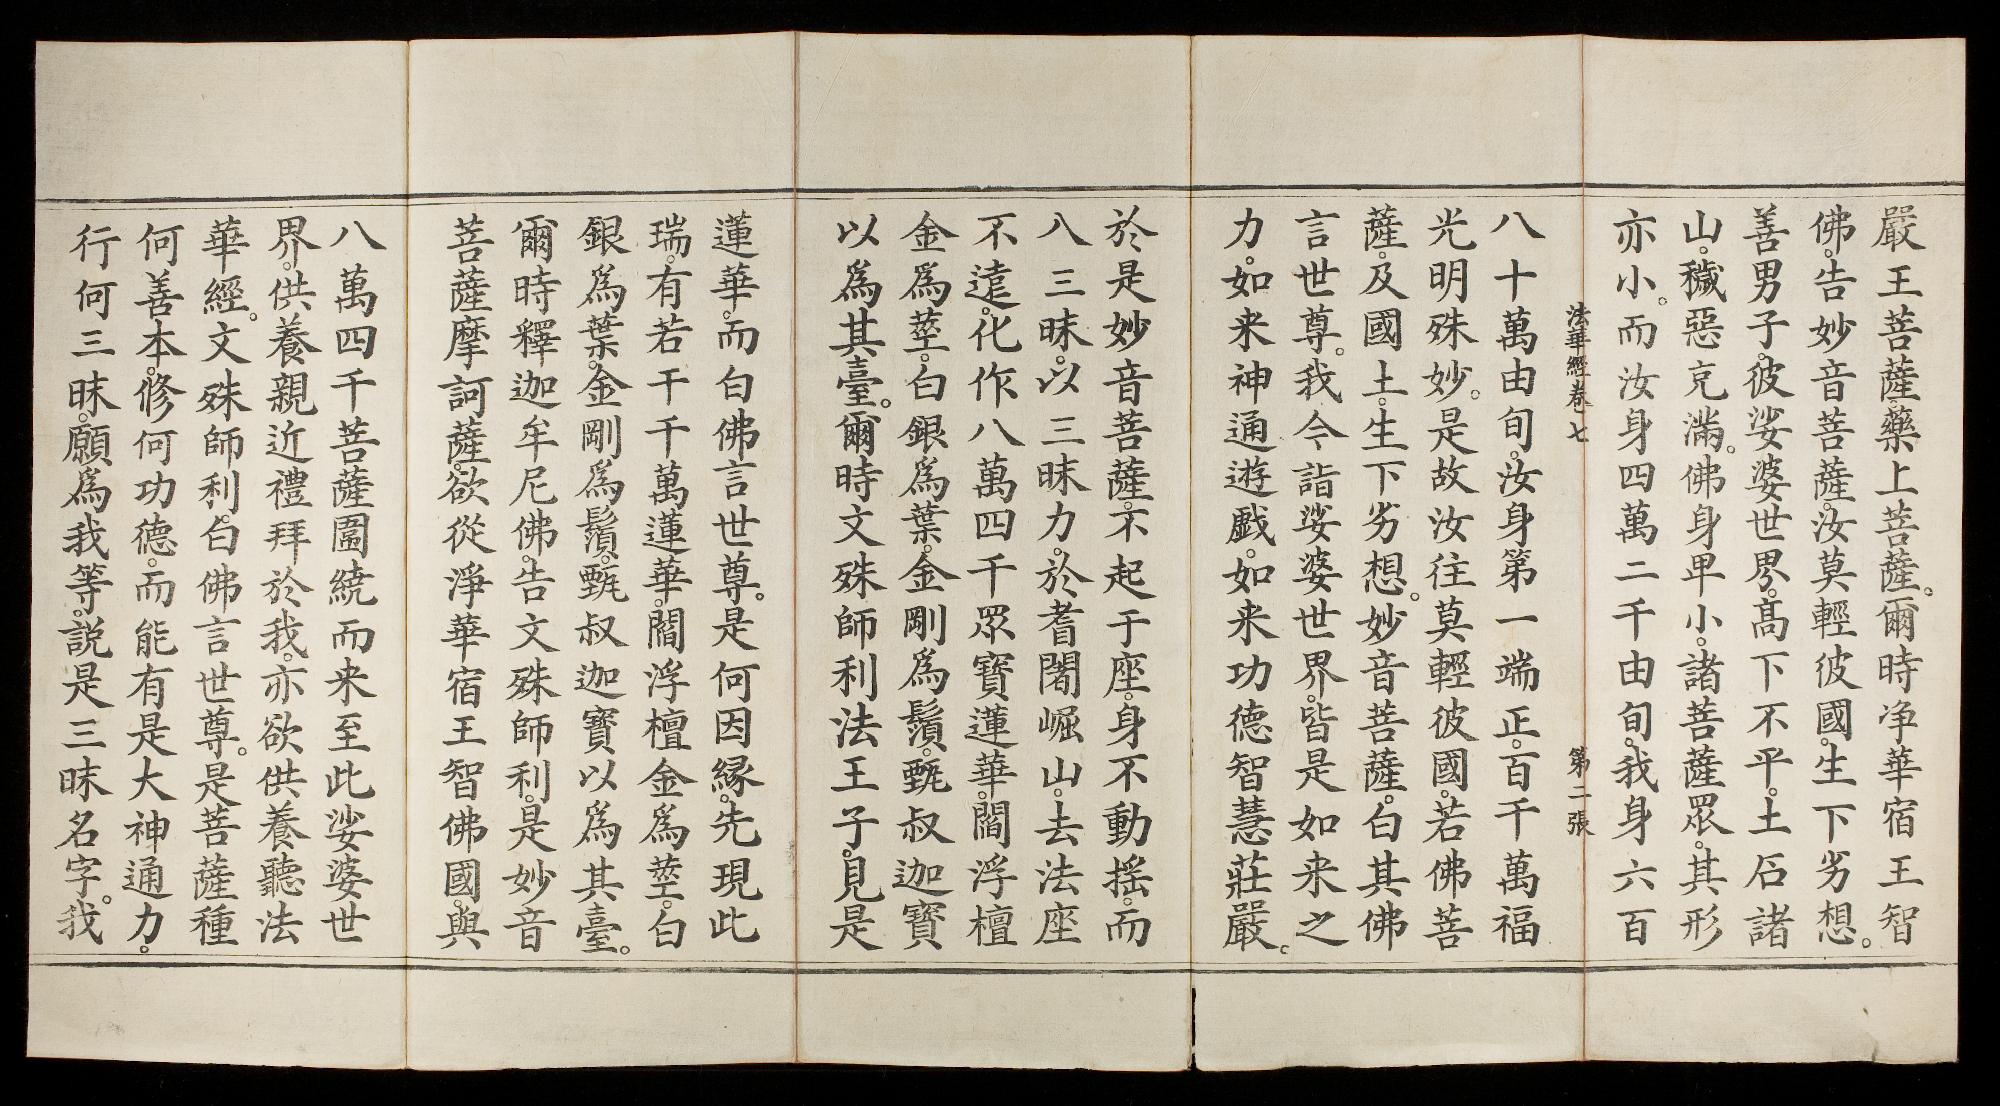 嚴王菩薩藥上菩薩。爾時净華宿王智
佛。告妙音菩薩。汝莫輕彼國。生下劣想。
善男子。彼娑婆世界。髙下不平。土石諸
山。穢惡充滿。佛身卑小。諸菩薩眾。其形
亦小。而汝身四萬二千由旬。我身六百
法華經卷七　第二張
八十萬由旬。汝身第一端正。百千萬福
光明殊妙。是故汝往莫輕彼國。若佛菩
薩。及國土。生下劣想。妙音菩薩。白其佛
言世尊。我今詣娑婆世界。皆是如来之
力。如来神通遊戱。如来功德智慧莊嚴。
於是妙音菩薩。不起于座。身不動揺。而
八三昧。以三昧力。於耆闍崛山。去法座
不遠。化作八萬四千眾寶蓮華。閻浮檀
金爲莖。白銀爲葉。金剛爲鬚。甄叔迦寶
以爲其臺。爾時文殊師利法王子。見是
蓮華。而白佛言世尊。是何因縁。先現此
瑞。有若干千萬蓮華。閻浮檀金爲莖。白
銀爲葉。金剛爲鬚。甄叔迦寶以爲其臺。
爾時釋迦牟尼佛。告文殊師利。是妙音
菩薩摩訶薩。欲從淨華宿王智佛國。與
八萬四千菩薩圍繞而来至此娑婆世
界。供養親近禮拜於我。亦欲供養聽法
華經。文殊師利。白佛言世尊。是菩薩種
何善本。修何功德。而能有是大神通力。
行何三昧。願爲我等。説是三昧名字。我